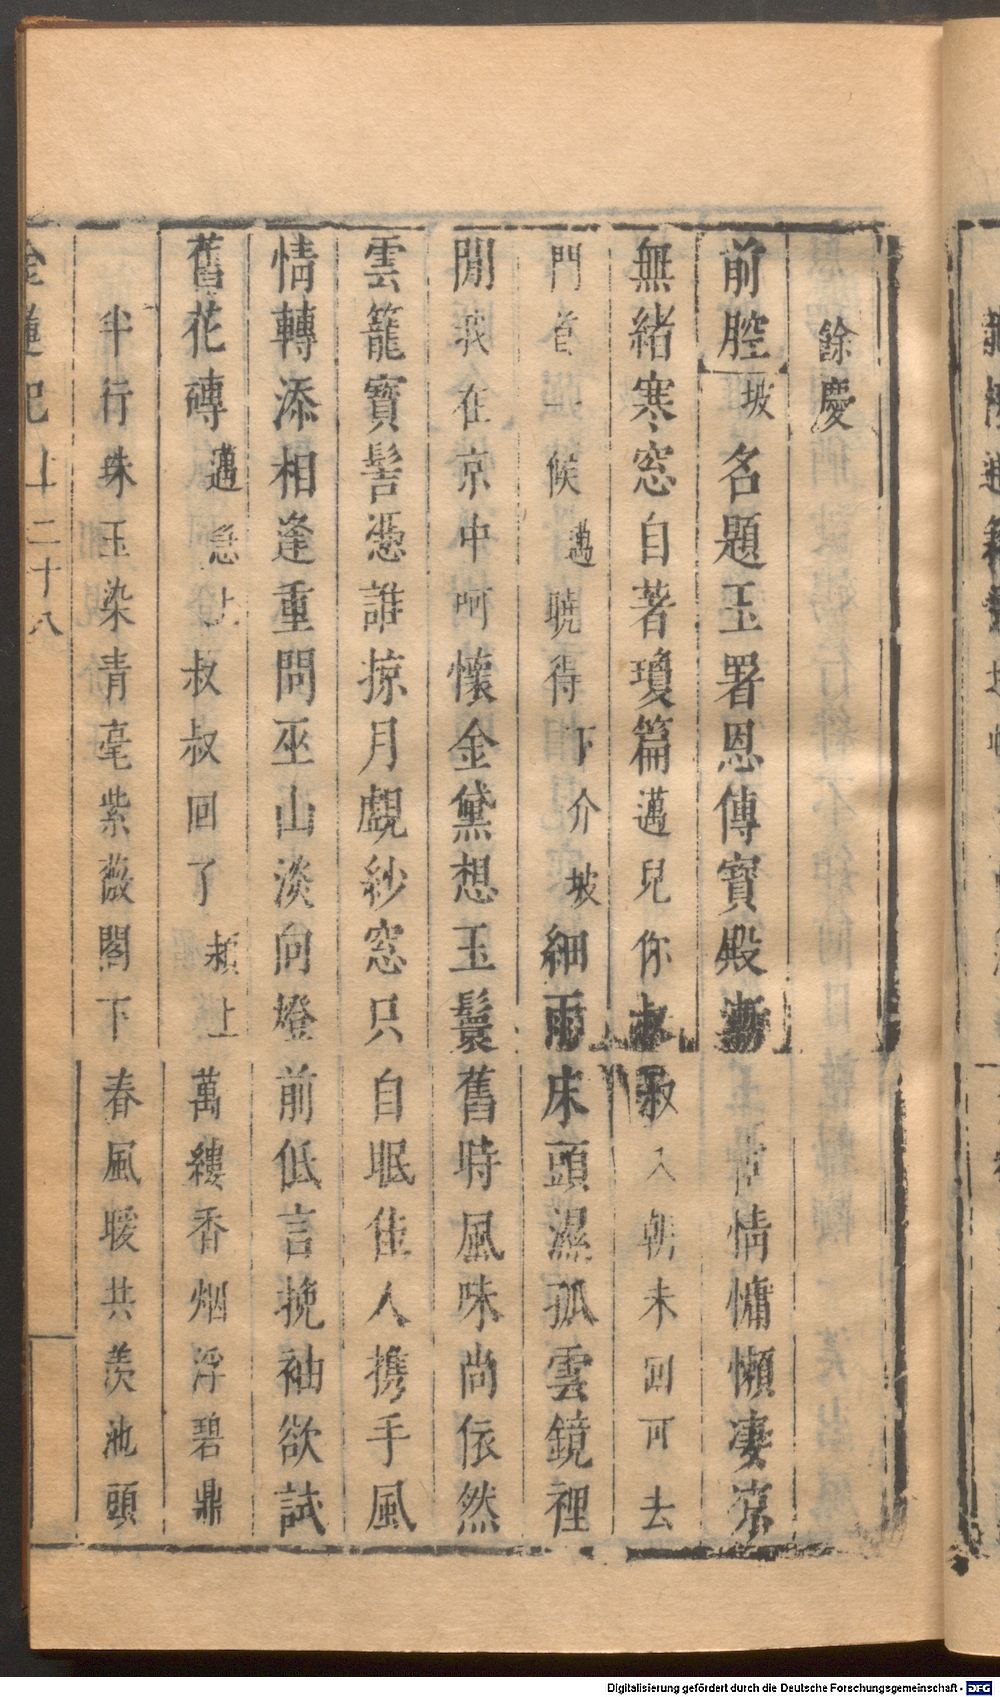 餘慶
前腔坡名題玉署恩傳寶殿情慵懶凄涼
無緒寒窓自著瓊篇邁兒你叔叔入朝未回可去
門首候邁曉得下介坡細雨床頭濕孤雲鏡裡
閒我在京中呵懷金黛想玉鬟舊時風味尚依然
雲籠寶髻憑誰掠月覷紗窓只自眠佳人携手風
情轉添相逢重問巫山淡向燈前低言挽袖欲試
舊花磚邁急上叔叔回了頳上萬縷香烟浮碧鼎
半行珠玉染青毫紫薇閣下春風暖共羨池頭
金蓮記上二十八
Digitalisierung gefördert durch die Deutsche Forschungsgemeinschaft - DFG